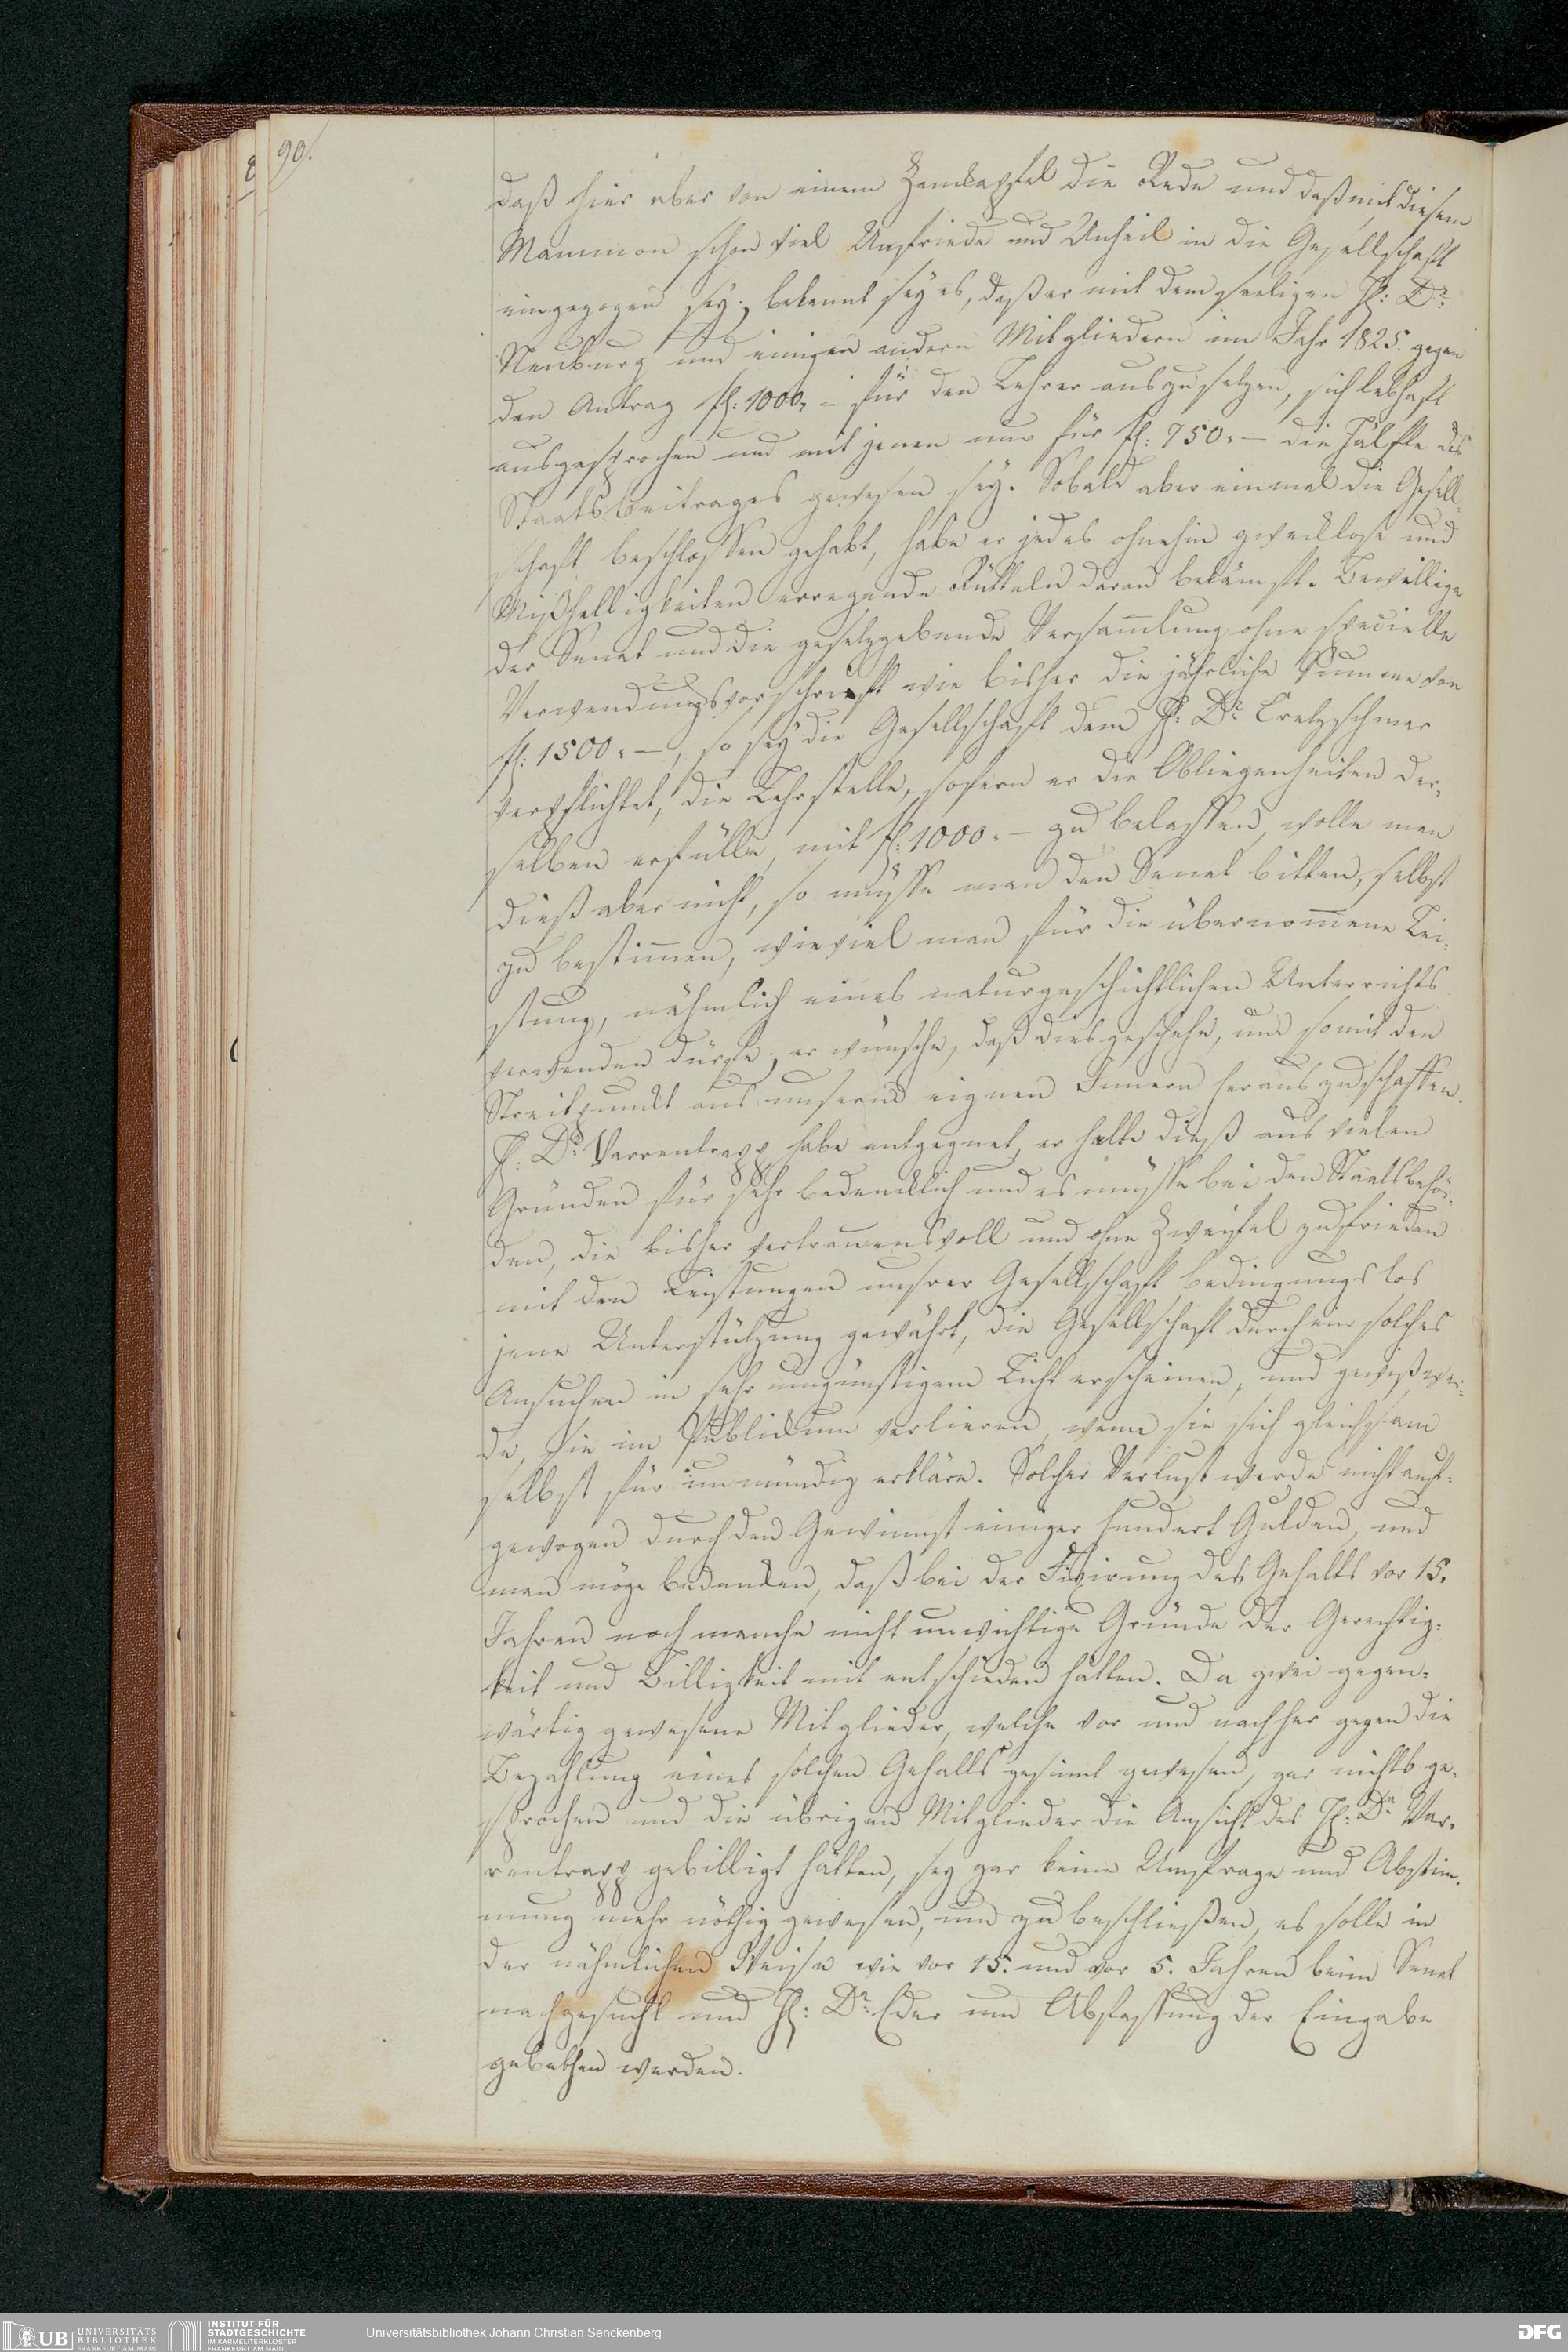 90.
daß hier aber von einem Zankapfel die Rede und daß mit diesem
Mammon schon viel Unfriede und Unheil in die Gesellschaft
eingezogen sey; bekannt sey es, daß er mit dem seeligen H: Dr
Neuburg und einigen andern Mitgliedern im Jahr 1825. gegen
den Antrag fl: 1000,- für den Lehrer auszusetzen, sich lebhaft
ausgesprochen und mit jenen nur für fl: 750,- die Hälfte des
Staatsbeitrages gewesen sey. Sobald aber einmal die Gesell-
schaft beschlossen gehabt, habe er jedes ohnehin zwecklose und
Mißhelligkeiten erregende Rütteln daran bekämpft. Bewillige
der Senat und die gesetzgebende Versam̅lung ohne specielle
Verwendungsvorschrift wie bisher die jährliche Summe von
fl: 1500,-, so sey die Gesellschaft dem H: Dr Cretzschmar
verpflichtet, die Lehrstelle, sofern er die Obliegenheiten der-
selben erfülle, mit fl: 1000,- zu belassen, wolle man
dieß aber nicht, so müsse man den Senat bitten, selbst
zu bestim̅en, wieviel man für die übernom̅ene Lei-
stung, nähmlich eines naturgeschichtlichen Unterrichts
verwenden dürfe; er wünsche, daß dies geschehe, um somit den
Streitpunckt aus unserm eignen Innern herauszuschaffen.
H: Dr Varrentrapp habe entgegnet, er halte dieß aus vielen
Gründen für sehr bedencklich und es müsse bei den Staatsbehör-
den, die bisher vertrauensvoll und ohne Zweifel zufrieden
mit den Leistungen unsrer Gesellschaft, bedingungslos
jene Unterstützung gewährt, die Gesellschaft durch ein solches
Ansuchen in sehr ungünstigem Licht erscheinen, und gewiß wer-
de, sie im Publicum verlieren, wenn sie sich gleichsam
selbst für unmündig erkläre. Solcher Verlust werde nicht auf-
gewogen durch den Gewinnst einiger hundert Gulden, und
man möge bedencken, daß bei der Fixirung des Gehalts vor 15.
Jahren noch manche nicht unwichtige Gründe der Gerechtig-
keit und Billigkeit mit entschieden hätten. Da zwei gegen-
wärtig gewesene Mitglieder, welche vor und nachher gegen die
Bezahlung eines solchen Gehalts gesinnt gewesen, gar nichts ge-
sprochen und die übrigen Mitglieder die Ansicht des H: Dr Var-
rentrapp gebilligt hätten, sey gar keine Umfrage und Abstim-
mung mehr nöthig gewesen, um zu beschließen, es solle in
der nähmlichen Weise wie vor 15. und vor 5. Jahren beim Senat
nachgesucht und H: Dr Eder um Abfassung der Eingabe
gebethen werden.
UB UNIVERSITÄTS
BIBLIOTHEK
FRANKFURT AM MAIN
INSTITUT FÜR
STADTGESCHICHTE
IM KARMELITERKLOSTER
FRANKFURT AM MAIN
Universitätsbibliothek Johann Christian Senckenberg
DFG